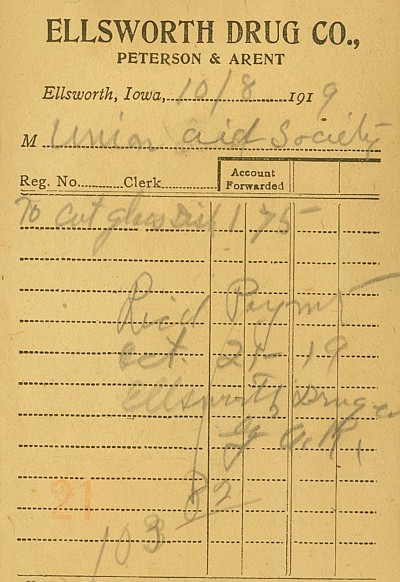 ELLSWORTH DRUG CO.,
PETERSON & ARENT
Ellsworth, Iowa, 10/8 1919
M Union aid Society
Account
Reg. No. Clerk Forwarded
To Cut glass Dish 1 75
Recd Paymt
Oct. 21-19
Ellsworth Drug co
A. R.
82
21
103